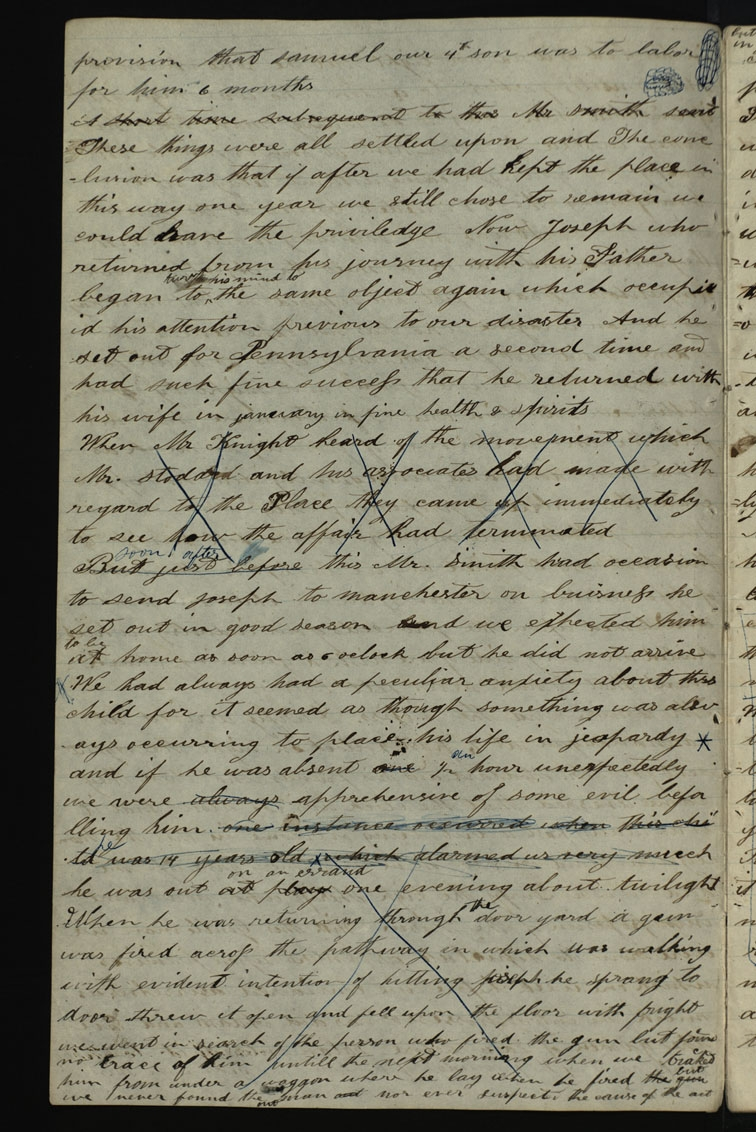 provision that samuel our 4th son was to labor
for him 6 months
A short time subsequent to this Mr Smith sent
These things were all settled upon and The conc
-lusion was that if after we had kept the place in
this way one year we still chose to remain we
could have the priviledge Now Joseph who
returned from his journey with his Father
turn his mind to
began to the same object again which occupi
id his attention previous to our disaster And he
set out for Pennsylvania a second time and
had such fine success that he returned with
his wife in january in fine health & spirits
When Mr Knight heard of the movement which
Mr. stodard and his associates had made with
regard to the Place they came up immediately
to see how the affair had terminated
soon after
But just before this Mr. Smith had occasion
to send Joseph to manchester on buisness he
set out in good season and we expected him
to be
at home as soon as 6 oclock but he did not arrive
We had always had a peculiar anxiety about this
child for it seemed as though something was alw
ays occurring to place his life in jeopardy
an
and if he was absent one ½ hour unexpectedly
we were always apprehensive of some evil befa
lling him one instance occurred when this chi
he
ld was 14 years old which alarmed us very much
on an errand
he was out at play one evening about twilight
the
When he was returning through door yard a gun
was fired across the pathway in which was walking
with evident intention of hitting he sprang to
door threw it open and fell upon the floor with fright
we went in search of the person who fired the gun but found
no trace of him untill the next morning when we
him from under a waggon where he lay when he fired the gun
but
we never found the man nor ever the cause of the act
out